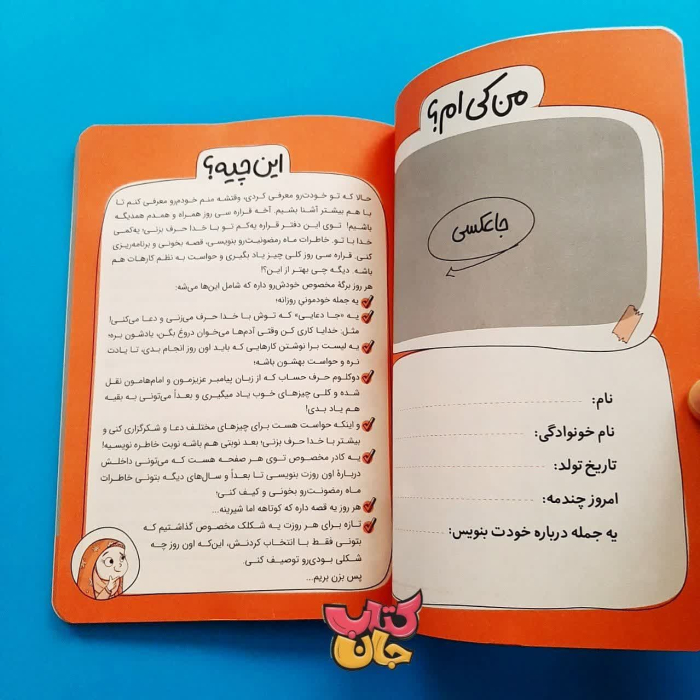 من کی ام؟
جاعکسی
نام:
نام خونوادگی:
تاریخ تولد:
امروز چندمه:
یه جمله درباره خودت بنویس:
این چیه؟
حالا که تو خودت‌رو معرفی کردی، وقتشه منم خودم‌رو معرفی کنم تا
با هم بیشتر آشنا بشیم. آخه قراره سی روز همراه و همدم همدیگه
باشیم! توی این دفتر قراره یه‌کم تو با خدا حرف بزنی؛ یه‌کمی
خدا با تو. خاطرات ماه رمضونیت‌رو بنویسی، قصه بخونی و برنامه‌ریزی
کنی. قراره سی روز کلی چیز یاد بگیری و حواست به نظم کارهات هم
باشه. دیگه چی بهتر از این؟!
هر روز برگهٔ مخصوص خودش‌رو داره که شامل این‌ها می‌شه:
یه جمله خودمونیِ روزانه؛
یه «جا دعایی» که توش با خدا حرف می‌زنی و دعا می‌کنی!
مثل: خدایا کاری کن وقتی آدم‌ها می‌خوان دروغ بگن، یادشون بره؛
یه لیست برا نوشتن کارهایی که باید اون روز انجام بدی، تا یادت
نره و حواست بهشون باشه؛
دوکلوم حرف حساب که از زبان پیامبر عزیزمون و امام‌هامون نقل
شده و کلی چیزهای خوب یاد میگیری و بعداً می‌تونی به بقیه
هم یاد بدی!
و اینکه حواست هست برای چیزهای مختلف دعا و شکرگزاری کنی و
بیشتر با خدا حرف بزنی؛ بعد نوبتی هم باشه نوبت خاطره نویسیه!
یه کادر مخصوص توی هر صفحه هست که می‌تونی داخلش
دربارهٔ اون روزت بنویسی تا بعداً و سال‌های دیگه بتونی خاطرات
ماه رمضونت‌رو بخونی و کیف کنی؛
هر روز یه قصه داره که کوتاهه اما شیرینه...
تازه برای هر روزت یه شکلک مخصوص گذاشتیم که
بتونی فقط با انتخاب کردنش، این‌که اون روز چه
شکلی بودی‌رو توصیف کنی.
پس بزن بریم...
کتاب
جان